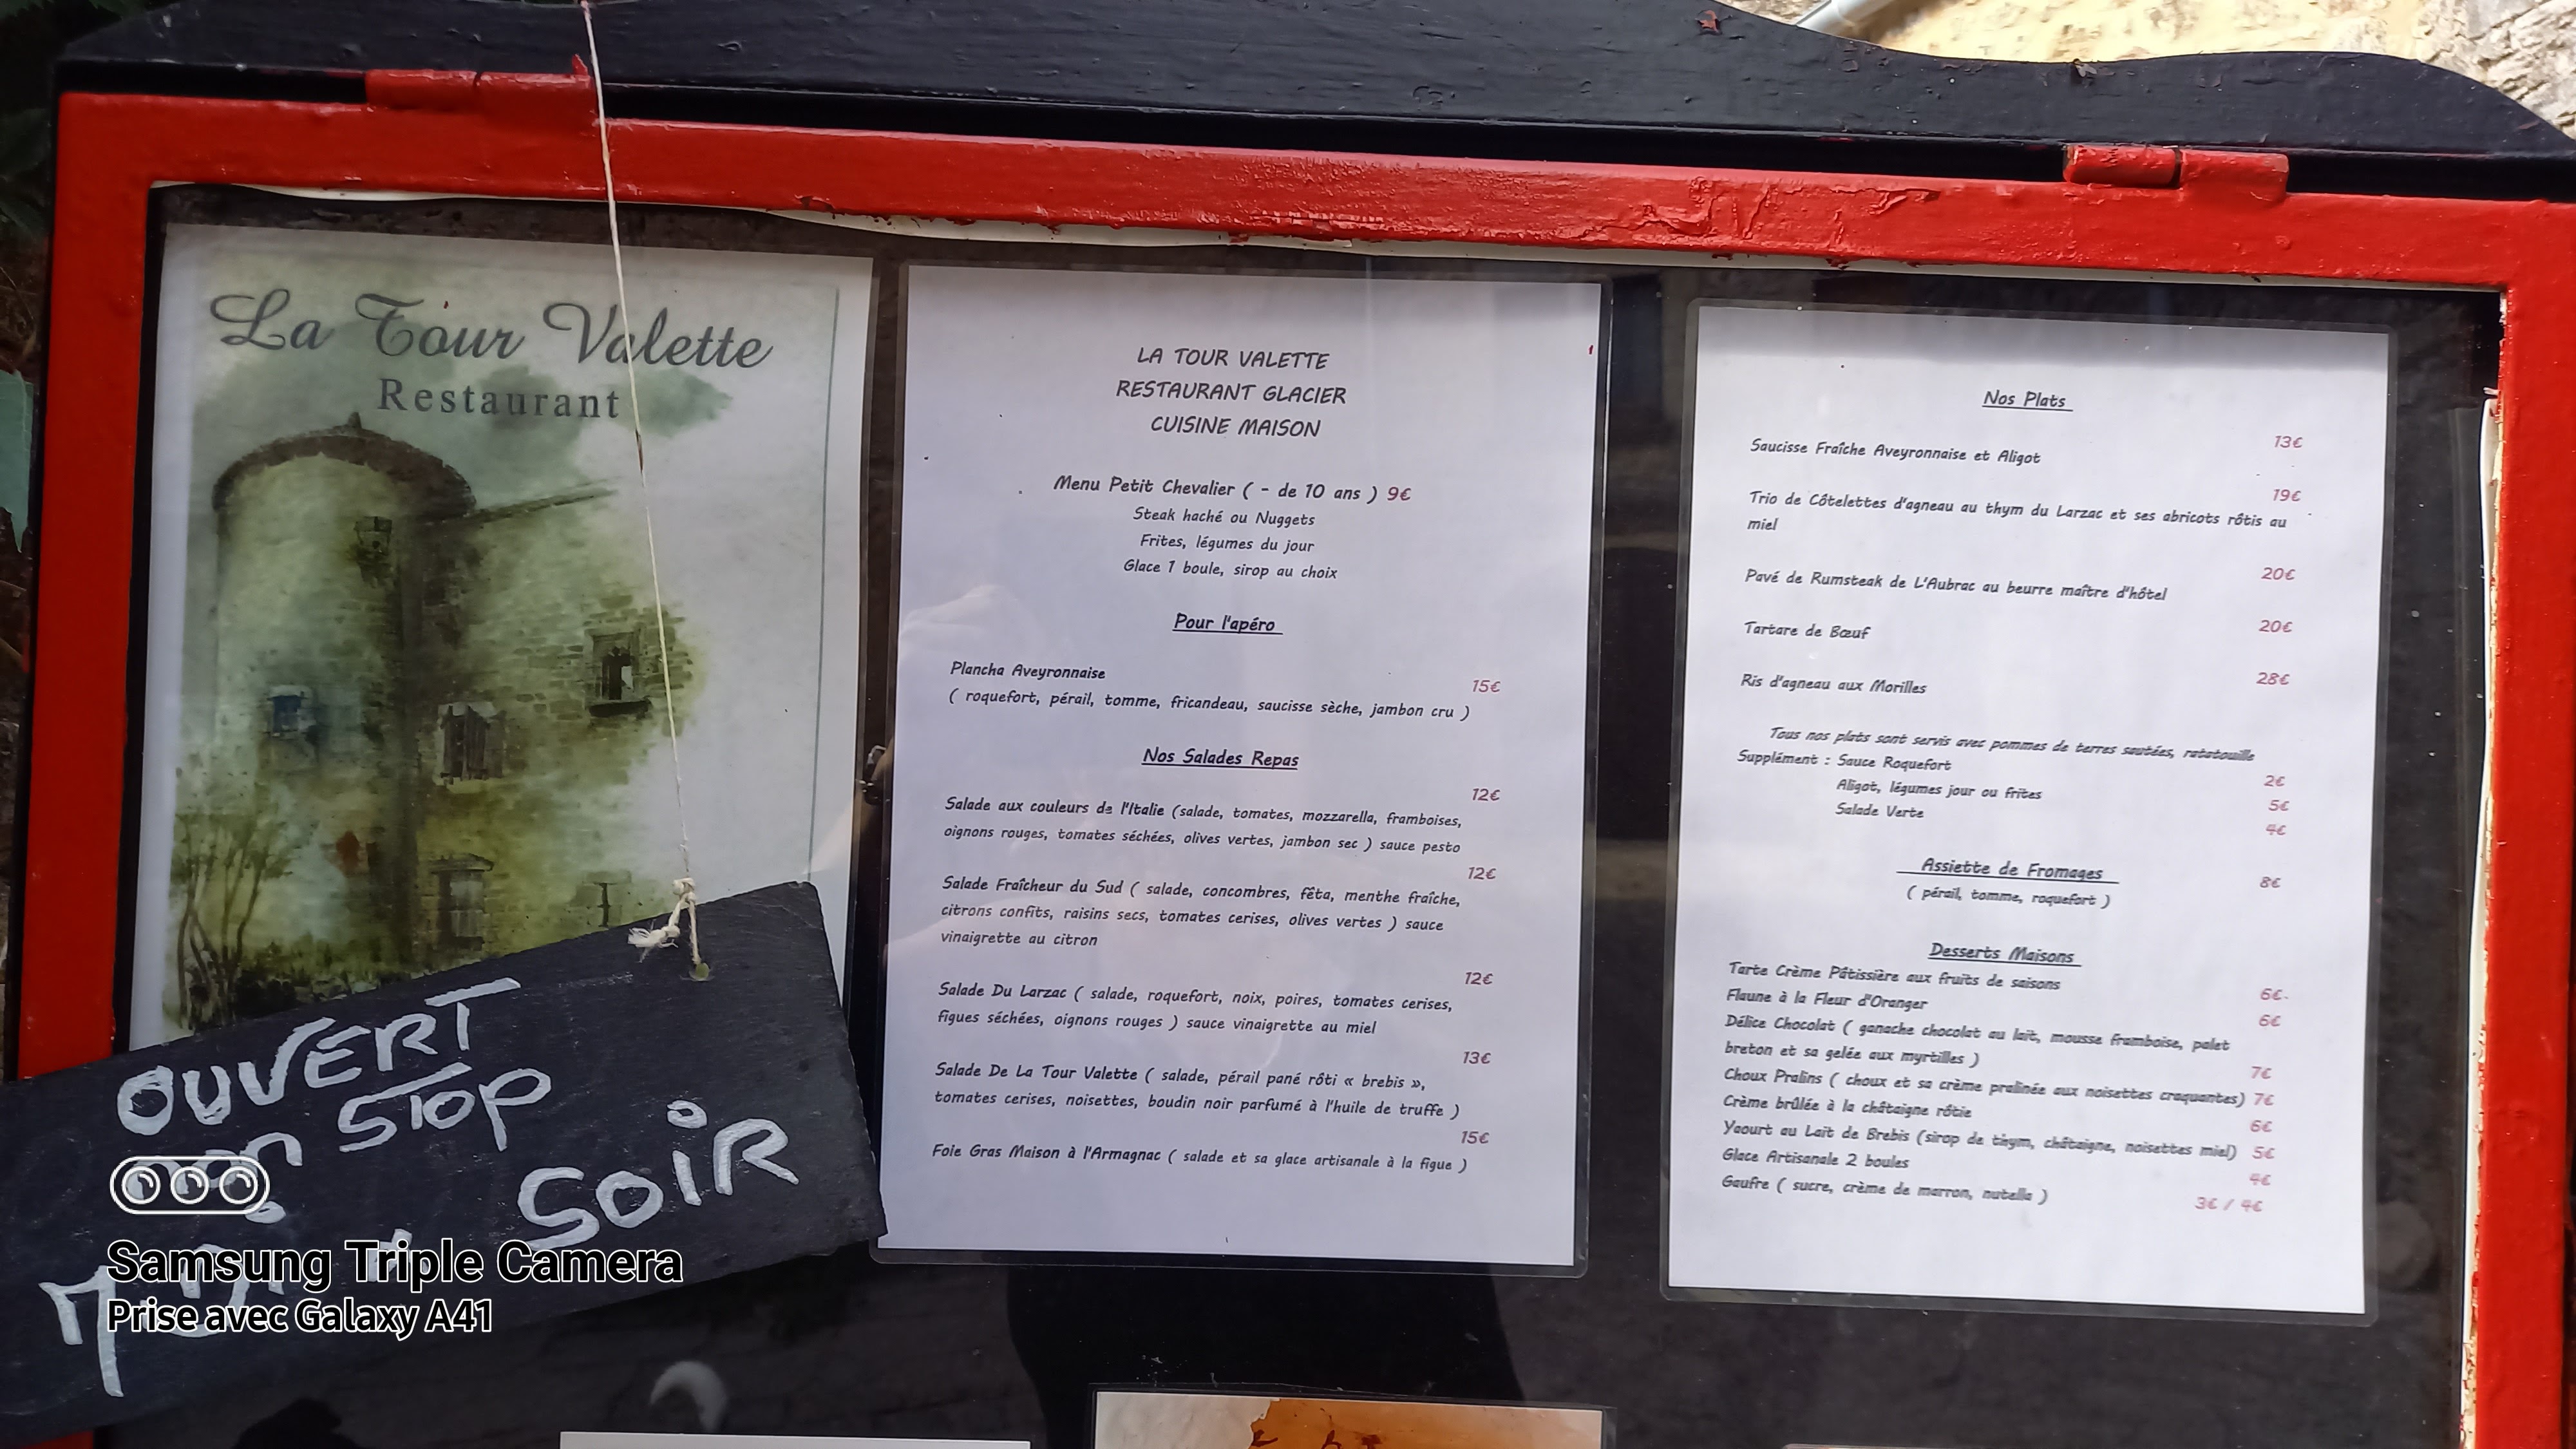 La Tour Valette
Restaurant
OUVERT
non STOP
SOIR
Samsung Triple Camera
Prise avec Galaxy A41
LA TOUR VALETTE
RESTAURANT GLACIER
CUISINE MAISON
Menu Petit Chevalier ( - de 10 ans ) 9€
Steak haché ou Nuggets
Frites, légumes du jour
Glace 1 boule, sirop au choix
Pour l'apéro
Plancha Aveyronnaise
15€
( roquefort, pérail, tomme, fricandeau, saucisse sèche, jambon cru )
Nos Salades Repas
12€
Salade aux couleurs de l'Italie (salade, tomates, mozzarella, framboises,
oignons rouges, tomates séchées, olives vertes, jambon sec ) sauce pesto
12€
Salade Fraîcheur du Sud ( salade, concombres, fêta, menthe fraîche,
citrons confits, raisins secs, tomates cerises, olives vertes ) sauce
vinaigrette au citron
12€
Salade Du Larzac ( salade, roquefort, noix, poires, tomates cerises,
figues séchées, oignons rouges ) sauce vinaigrette au miel
13€
Salade De La Tour Valette ( salade, pérail pané rôti « brebis »,
tomates cerises, noisettes, boudin noir parfumé à l'huile de truffe )
15€
Foie Gras Maison à l'Armagnac ( salade et sa glace artisanale à la figue )
Nos Plats
13€
Saucisse Fraîche Aveyronnaise et Aligot
19€
Trio de Côtelettes d'agneau au thym du Larzac et ses abricots rôtis au
miel
20€
Pavé de Rumsteak de L'Aubrac au beurre maître d'hôtel
20€
Tartare de Bœuf
28€
Ris d'agneau aux Morilles
Tous nos plats sont servis avec pommes de terres sautées, ratatouille
Supplément : Sauce Roquefort
2€
Aligot, légumes jour ou frites
5€
Salade Verte
4€
Assiette de Fromages
8€
( pérail, tomme, roquefort )
Desserts Maisons
Tarte Crème Pâtissière aux fruits de saisons
6€
Flaune à la Fleur d'Oranger
6€
Délice Chocolat ( ganache chocolat au lait, mousse framboise, palet
breton et sa gelée aux myrtilles )
7€
Choux Pralins ( choux et sa crème pralinée aux noisettes craquantes) 7€
Crème brûlée à la châtaigne rôtie
6€
Yaourt au Lait de Brebis (sirop de thym, châtaigne, noisettes miel) 5€
Glace Artisanale 2 boules
4€
Gaufre ( sucre, crème de marron, nutella )
3€ / 4€